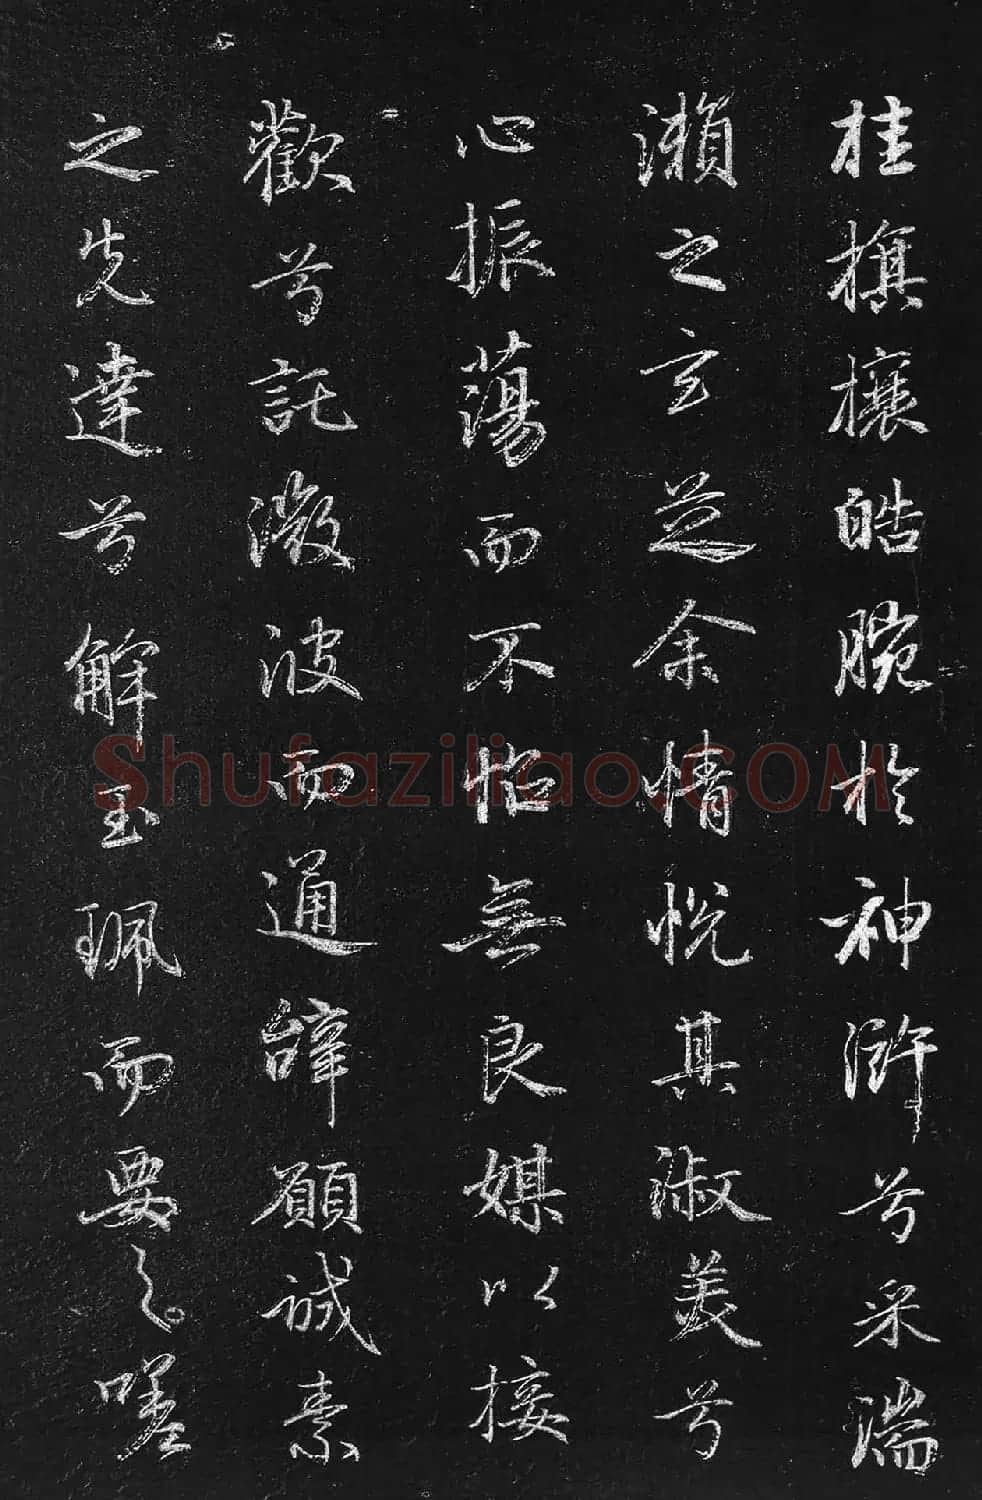 桂旗攘皓腕於神滸兮采湍
瀨之玄芝余情悅其淑美兮
心振蕩而不怡無良媒以接
歡兮託微波而通辭願誠素
之先達兮解玉珮而要之嗟
Shufaziliao.COM